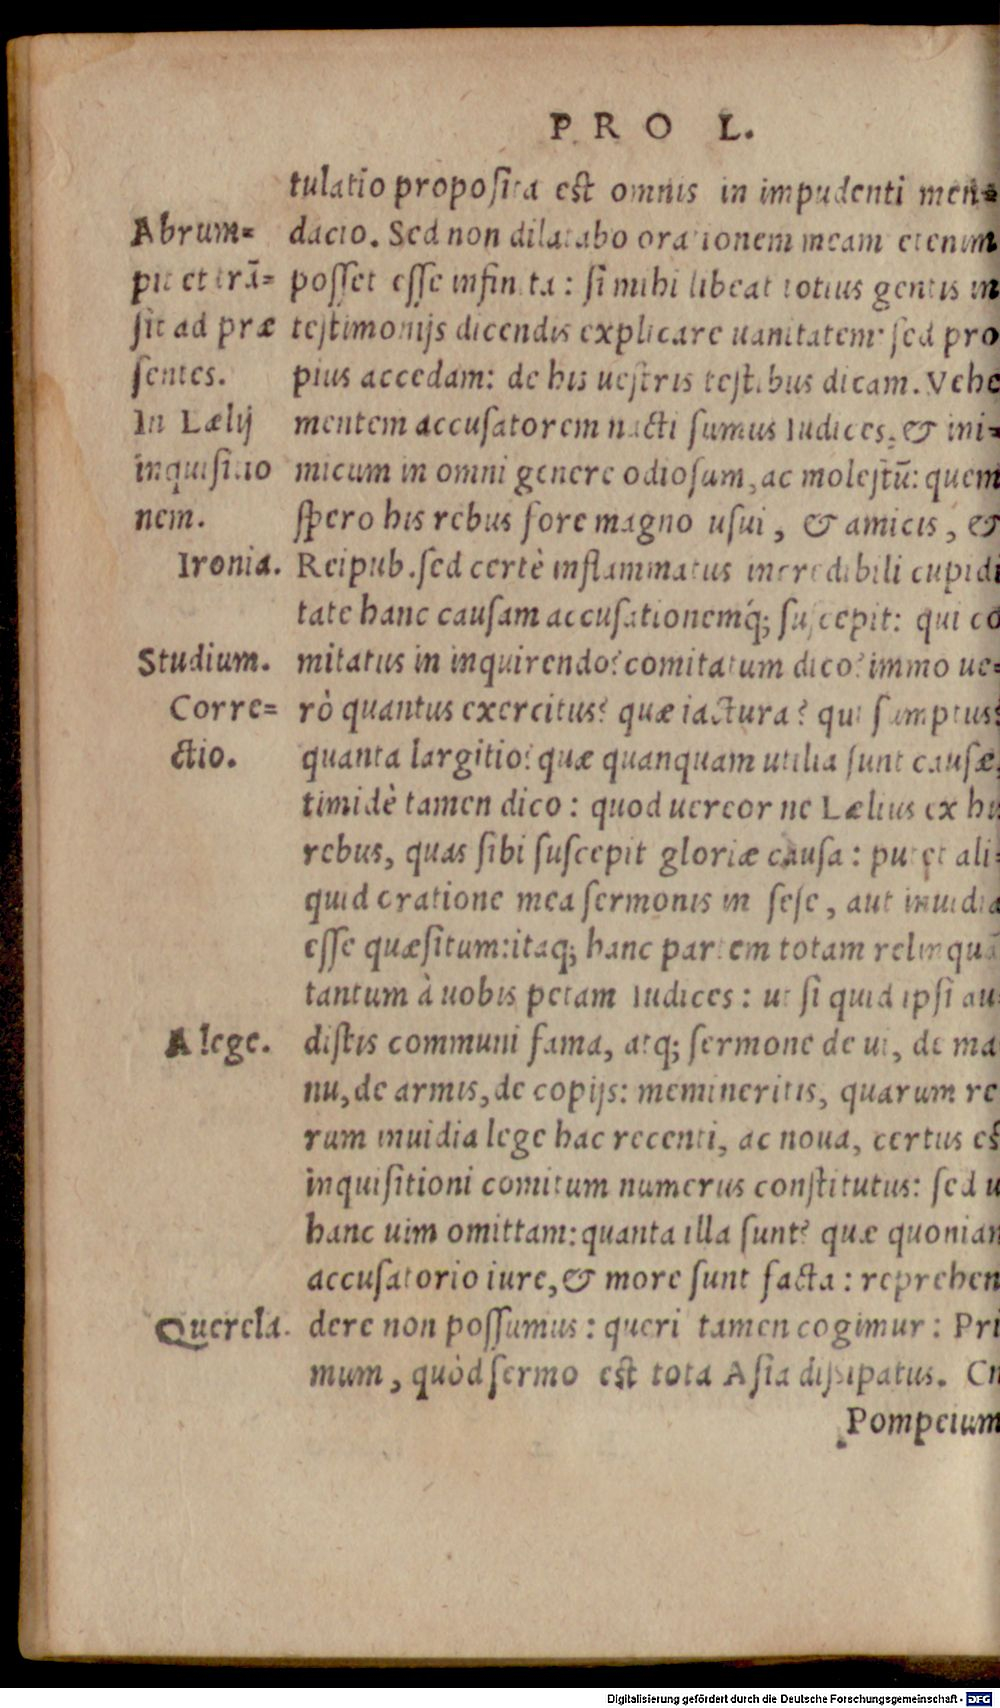 PRO L.
tulatio proposita est omnis in impudenti men=
dacio. Sed non dilatabo orationem meam etenim
posset esse infinita: si mihi libeat totius gentis in
testimonijs dicendis explicare uanitatem: sed pro
pius accedam: de his uestris testibus dicam. Vehe
mentem accusatorem nacti sumus Iudices, & ini=
micum in omni genere odiosum, ac molestū: quem
spero his rebus fore magno usui, & amicis, &
Reipub. sed certè inflammatus incredibili cupidi
tate hanc causam accusationemq́; suscepit: qui co
mitatus in inquirendo? comitatum dico? immo ue=
rò quantus exercitus? quæ iactura? qui sumptus?
quanta largitio? quæ quanquam utilia sunt causæ,
timidè tamen dico: quod uereor ne Lælius ex his
rebus, quas sibi suscepit gloriæ causa: putet ali=
quid oratione mea sermonis in sese, aut inuidia
esse quæsitum: itaq; hanc partem totam relinquā
tantum à uobis petam Iudices: ut si quid ipsi au
distis communi fama, atq; sermone de ui, de ma
nu, de armis, de copijs: memineritis, quarum re
rum inuidia lege hac recenti, ac noua, certus est
inquisitioni comitum numerus constitutus: sed u
hanc uim omittam: quanta illa sunt? quæ quoniam
accusatorio iure, & more sunt facta: reprehen
dere non possumus: queri tamen cogimur: Pri
mum, quòd sermo est tota Asia dissipatus. Cn
Pompeium
Abrum=
pit et trā=
sit ad præ
sentes.
In Lælij
inquisitio
nem.
Ironia.
Studium.
Corre=
ctio.
A lege.
Querela.
Digitalisierung gefördert durch die Deutsche Forschungsgemeinschaft - DFG